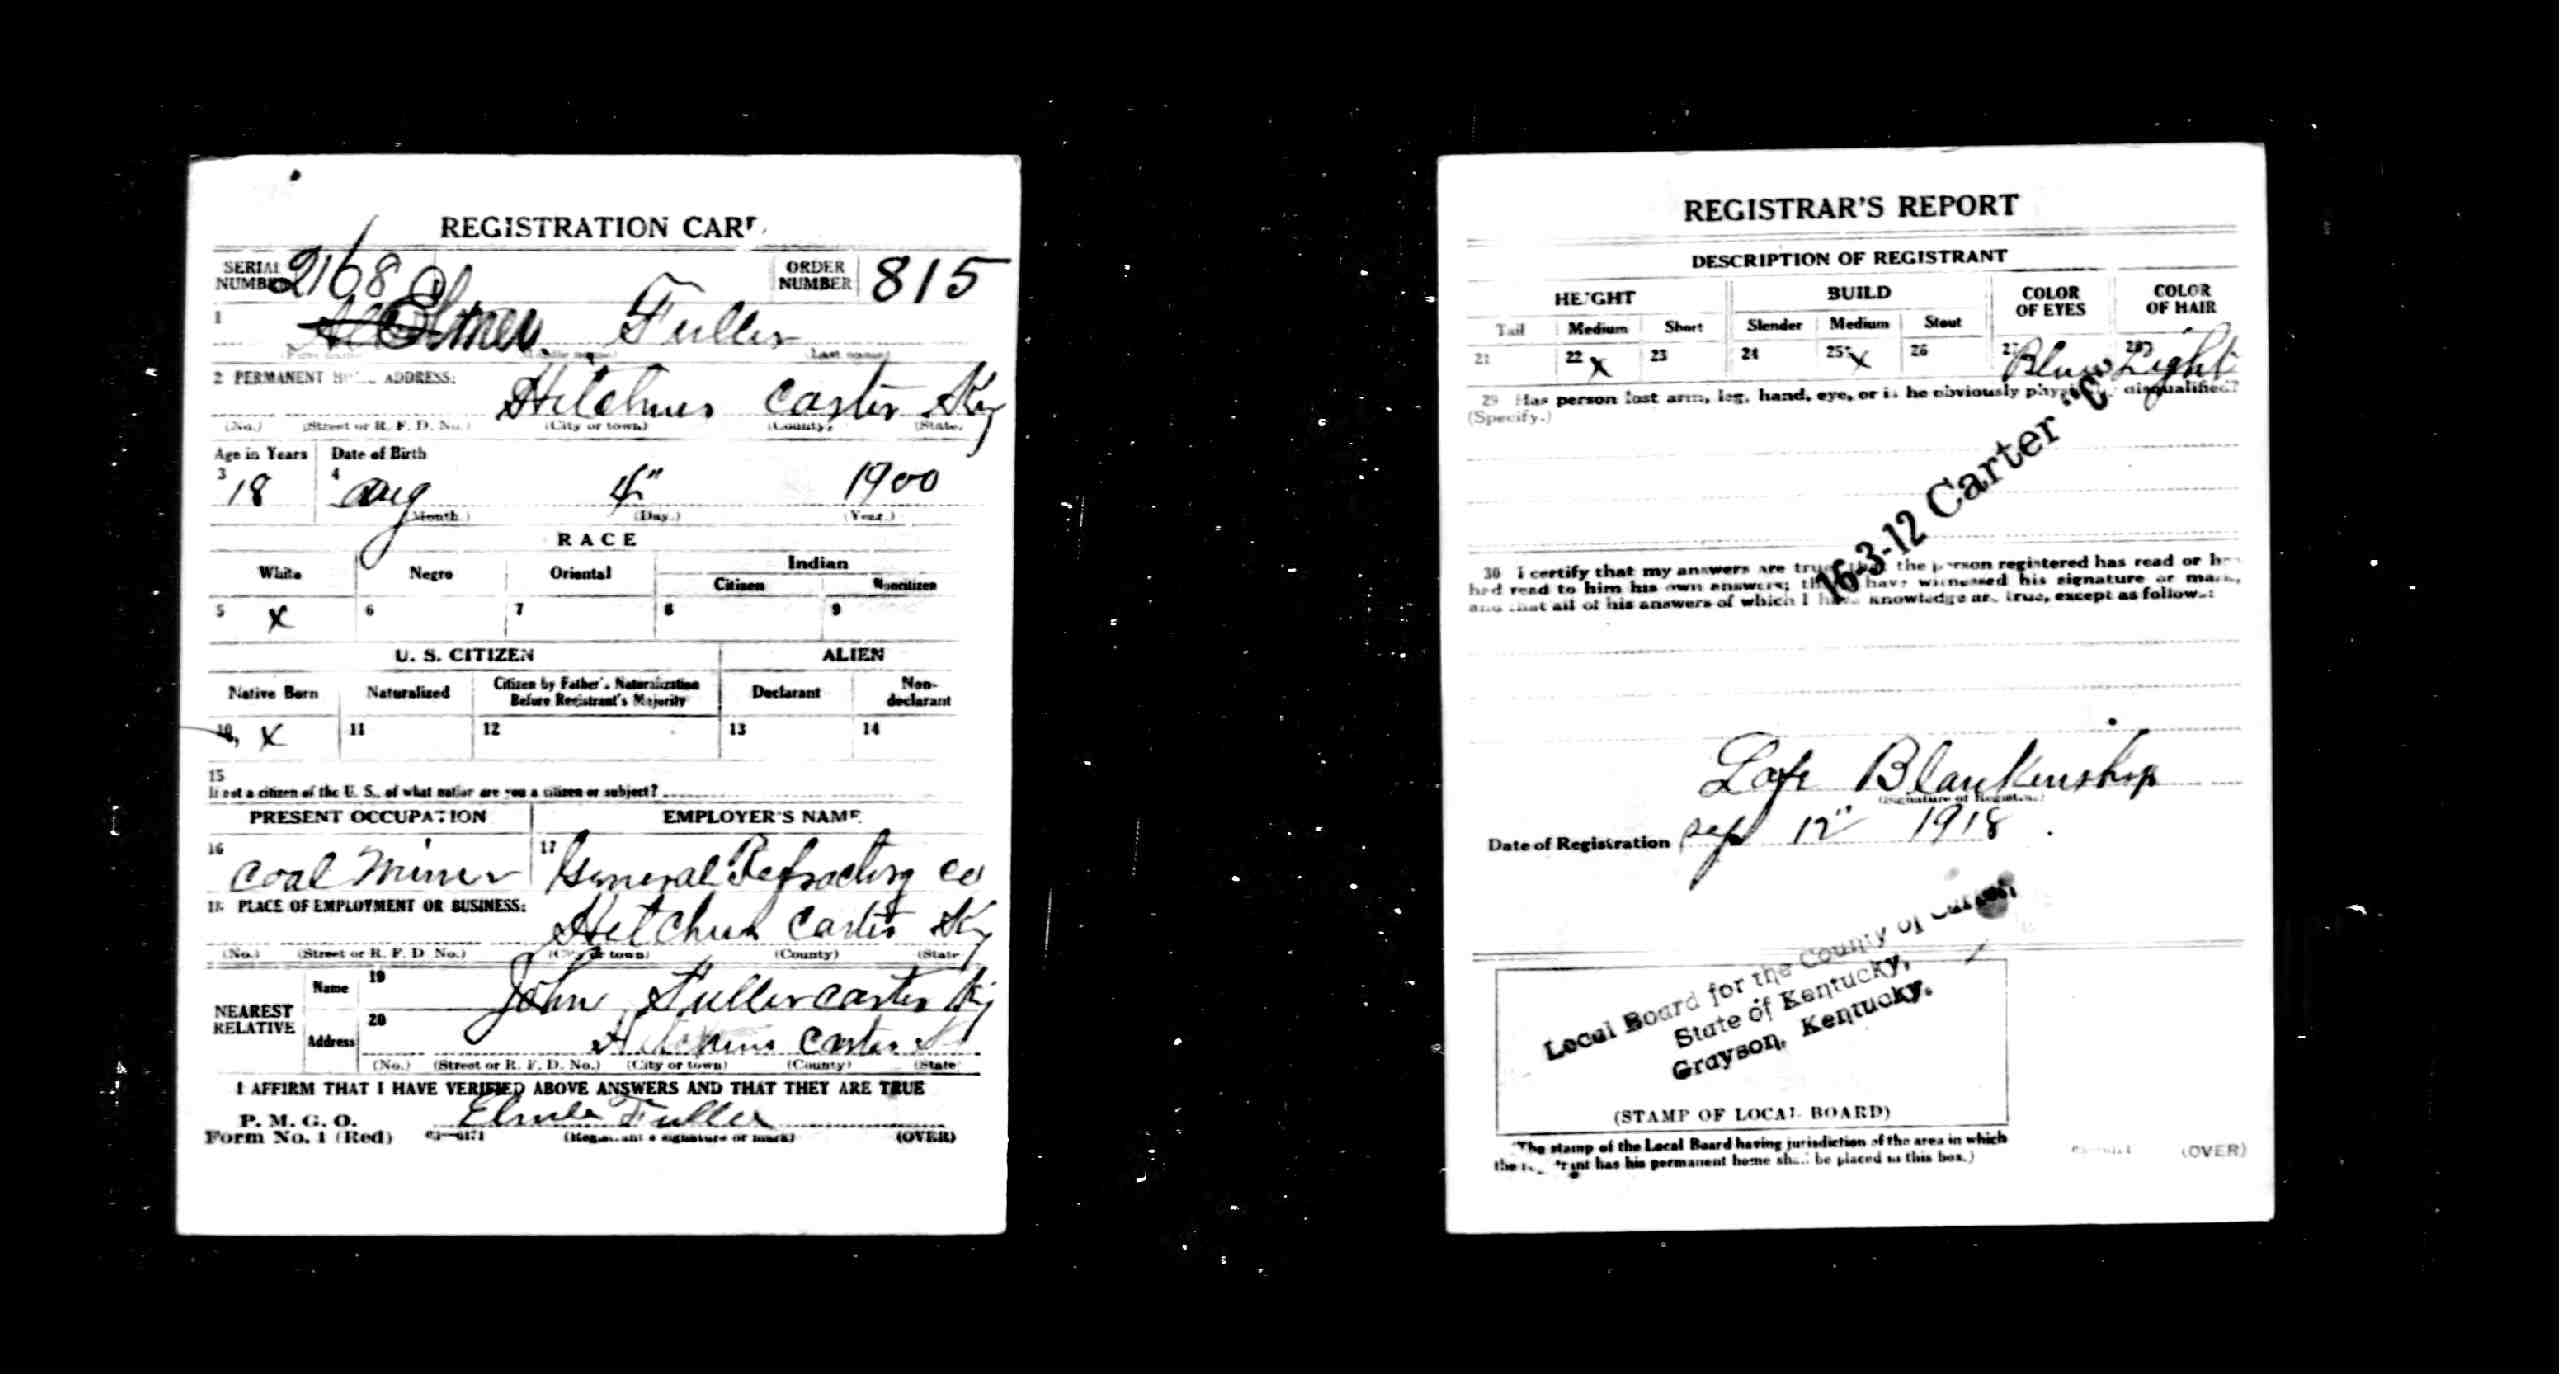 REGISTRATION CARD
SERIAL NUMBER 2168
ORDER NUMBER 815
1 Elmer Fuller
(First name) (Middle name) (Last name)
2 PERMANENT HOME ADDRESS:
Hitchins Carter Ky
(No.) (Street or R. F. D. No.) (City or town) (County) (State)
Age in Years Date of Birth
3 18 4 Aug 4" 1900
(Month.) (Day.) (Year.)
RACE
White Negro Oriental Indian
Citizen Noncitizen
5 X 6 7 8 9
U. S. CITIZEN ALIEN
Native Born Naturalized Citizen by Father's Naturalization Before Registrant's Majority Declarant Non-declarant
10 X 11 12 13 14
15
If not a citizen of the U. S., of what nation are you a citizen or subject?
PRESENT OCCUPATION EMPLOYER'S NAME
16 Coal Miner 17 General Refractory Co
18 PLACE OF EMPLOYMENT OR BUSINESS:
Hitchins Carter Ky
(No.) (Street or R. F. D. No.) (City or town) (County) (State)
NEAREST RELATIVE
Name 19 John Fuller Carter Ky
Address 20 Hitchins Carter
(No.) (Street or R. F. D. No.) (City or town) (County) (State)
I AFFIRM THAT I HAVE VERIFIED ABOVE ANSWERS AND THAT THEY ARE TRUE
P. M. G. O.
Form No. 1 (Red) Elmer Fuller
(Registrant's signature or mark) (OVER)
REGISTRAR'S REPORT
DESCRIPTION OF REGISTRANT
HEIGHT BUILD COLOR OF EYES COLOR OF HAIR
Tall Medium Short Slender Medium Stout
21 22 X 23 24 25 X 26 27 Blue 28 Light
29 Has person lost arm, leg, hand, eye, or is he obviously physically disqualified?
(Specify.)
16-3-12 Carter "C"
30 I certify that my answers are true; that the person registered has read or has
had read to him his own answers; that I have witnessed his signature or mark,
and that all of his answers of which I have knowledge are true, except as follows:
Lafe Blankenship
(Signature of Registrar)
Date of Registration Sep 12" 1918
Local Board for the County of Carter
State of Kentucky,
Grayson, Kentucky.
(STAMP OF LOCAL BOARD)
(The stamp of the Local Board having jurisdiction of the area in which
the registrant has his permanent home shall be placed in this box.)
(OVER)